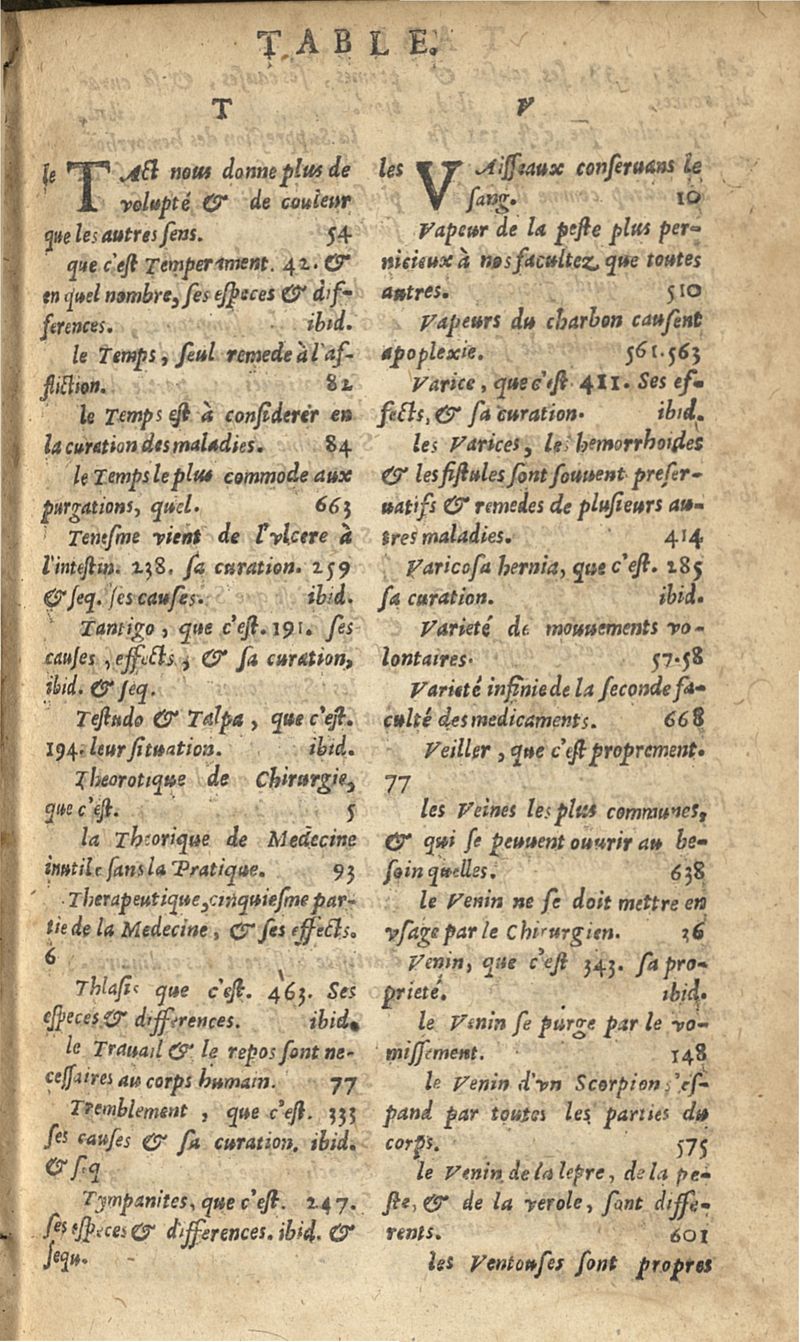 TABLE.
T
le TAct nous donne plus de
volupté & de couleur
que les autres sens. 54
que c'est Temperament. 42. &
en quel nombre, ses especes & dif-
ferences. ibid.
le Temps, seul remede à l'af-
fliction. 82
le Temps est à considerer en
la curation des maladies. 84
le Temps le plus commode aux
purgations, quel. 663
Tenesme vient de l'vlcere à
l'intestin. 238. sa curation. 259
& seq. ses causes. ibid.
Tantigo, que c'est. 191. ses
causes, effects, & sa curation,
ibid. & seq.
Testudo & Talpa, que c'est.
194. leur situation. ibid.
Theorotique de Chirurgie,
que c'est. 5
la Theorique de Medecine
inutile sans la Pratique. 93
Therapeutique, cinquiesme par-
tie de la Medecine, & ses effects.
6
Thlasis que c'est. 463. Ses
especes & differences. ibid.
le Travail & le repos sont ne-
cessaires au corps humain. 77
Tremblement, que c'est. 333
ses causes & sa curation. ibid.
& seq
Tympanites, que c'est. 247.
ses especes & differences. ibid. &
sequ.
V
les VAisseaux conservans le
sang. 10
Vapeur de la peste plus per-
nicieux à nos facultez, que toutes
autres. 510
Vapeurs du charbon causent
apoplexie. 561.563
Varice, que c'est 411. Ses ef-
fects, & sa curation. ibid.
les Varices, les hemorrhoides
& les fistules sont souuent preser-
uatifs & remedes de plusieurs au-
tres maladies. 414
Varicosa hernia, que c'est. 285
sa curation. ibid.
Varieté de mouuements vo-
lontaires. 57.58
Varieté infinie de la seconde fa-
culté des medicaments. 668
Veiller, que c'est proprement.
77
les Veines les plus communes,
& qui se peuuent ouurir au be-
soin quelles. 638
le Venin ne se doit mettre en
vsage par le Chirurgien. 36
Venin, que c'est 343. sa pro-
prieté. ibid.
le Venin se purge par le vo-
missement. 148
le Venin d'vn Scorpion s'es-
pand par toutes les parties du
corps. 575
le Venin de la lepre, de la pe-
ste, & de la verole, sont diffe-
rents. 601
les Ventouses sont propres